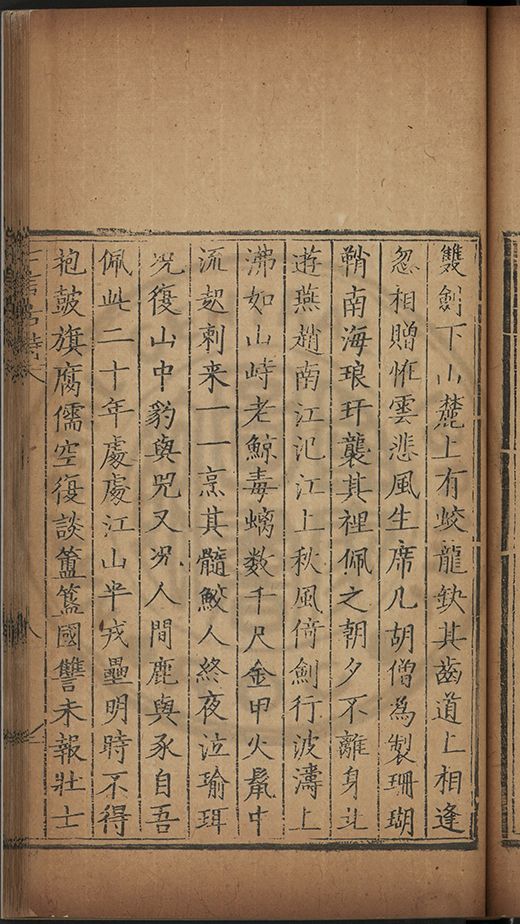 雙劍下山麓上有蛟龍鈌其齒道上相逢
忽相贈惟雲悲風生席几胡僧為製珊瑚
鞘南海琅玕襲其裡佩之朝夕不離身北
遊燕趙南江汜江上秋風倚劍行波濤上
沸如山峙老鯨毒螭数千尺金甲火鬣中
流起刺来一一烹其髓鮫人終夜泣瑜珥
况復山中豹與兕又况人間鹿與豕自吾
佩此二十年處處江山半戎壘明時不得
抱鼓旗腐儒空復談簠簋國讐未報壯士